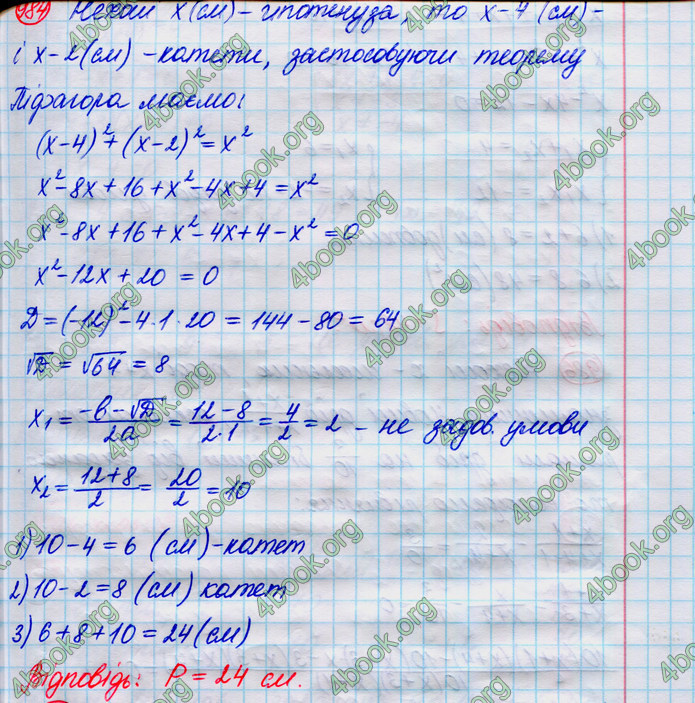 984 Нехай x (см) - гіпотенуза, то x-4 (см) -
і x-2 (см) - катети, застосовуючи теорему
Піфагора маємо:
(x-4)²+(x-2)²=x²
x²-8x+16+x²-4x+4=x²
x²-8x+16+x²-4x+4-x²=0
x²-12x+20=0
D=(-12)²-4·1·20=144-80=64
√D=√64=8
x₁=(-b-√D)/(2a)=(12-8)/(2·1)=4/2=2 - не задов. умови
x₂=(12+8)/2=20/2=10
1) 10-4=6 (см)-катет
2) 10-2=8 (см) катет
3) 6+8+10=24 (см)
Відповідь: P=24 см.
4book.org